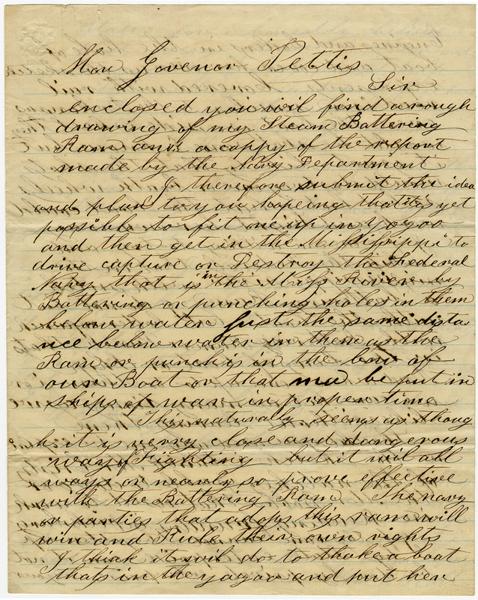 Hon Govenor Pettis
Sir
enclosed you wil find a rough
drawing of my Steam Battering
Ram and a coppy of the report
made by the Navy Department
I therefore submit the idea
and plan to you hopeing that it is yet
possible to fit one up in yazoo
and then get in the Mississippi to
drive capture or Destroy the Frederal
Navy that is in the Miss River by
Battering or punching holes in them
below water Just the same dista
nce below water in them as the
Ram or punch is in the bow of
our Boat or that ma be put in
ships of war in proper time
This naturally seems as thoug
h it is verry close and dangerous
way of Fighting but it wil all
ways or nearly so prove effective
with the Battering Ram The navy
or parties that adops this ram will
win and Rule their own rights
I think it wil do to take a boat
thats in the yazoo and put her